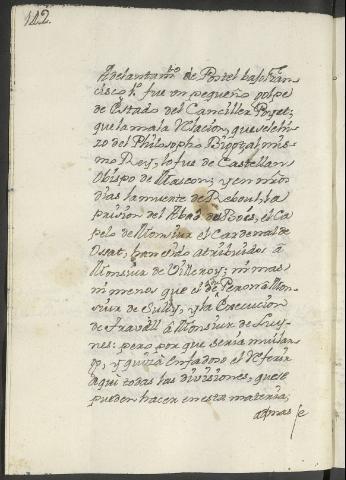 142.
Adelantam.to de Portel bajo Fran-
cisco 1.o fue un pequeño golpe
de Estado del Canciller Poyet;
que la mala Relacion, que se le hi-
zo del Philosopho Bigot al mis-
mo Rey, lo fue de Castellan
Obispo de Mascon; y en nros
dias la muerte de Reboul, la
prision del Abad du Bois, el Ca-
pelo de Monsiur el Cardenal de
Ossat, han sido atribuidos â
Monsiur de Villeroy; ni mas
ni menos que el de Peron â Mon-
siur de Sully, y la Execucion
de Travail â Monsiur de Luy-
nes: pero por que seria mui lar-
go, y quizà enfadoso el Referir
aqui todas las divisiones, que se
pueden hacer en esta materia;
ademas se